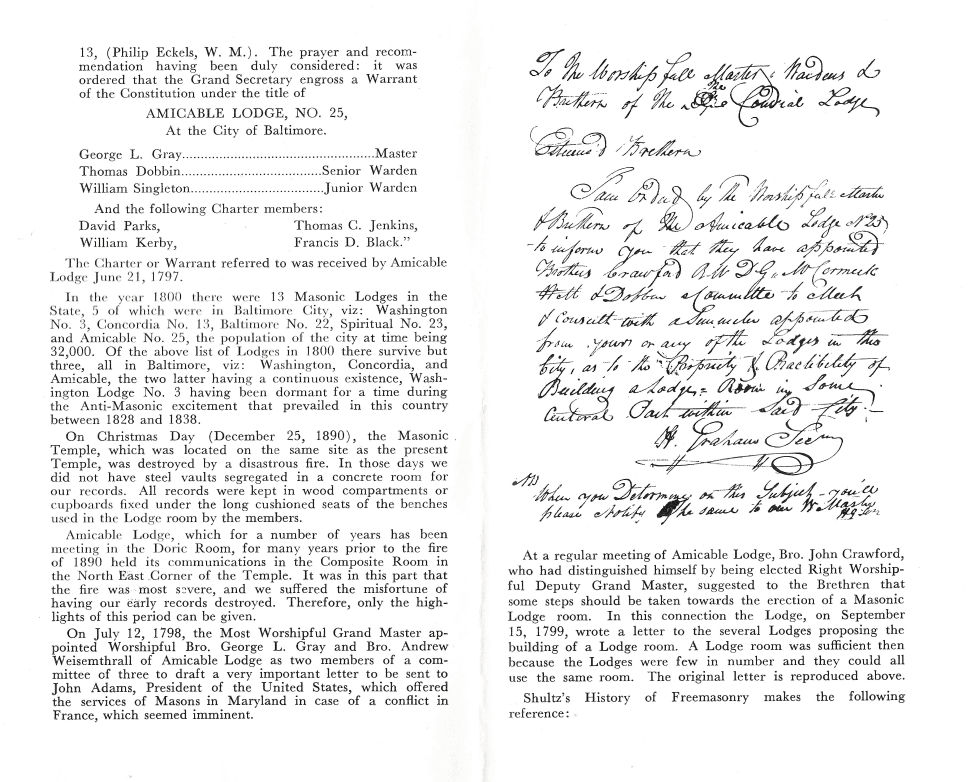 13, (Philip Eckels, W. M.). The prayer and recom-
mendation having been duly considered: it was
ordered that the Grand Secretary engross a Warrant
of the Constitution under the title of
AMICABLE LODGE, NO. 25,
At the City of Baltimore.
George L. Gray................................................Master
Thomas Dobbin...................................Senior Warden
William Singleton.................................Junior Warden
And the following Charter members:
David Parks, Thomas C. Jenkins,
William Kerby, Francis D. Black."
The Charter or Warrant referred to was received by Amicable
Lodge June 21, 1797.
In the year 1800 there were 13 Masonic Lodges in the
State, 5 of which were in Baltimore City, viz: Washington
No. 3, Concordia No. 13, Baltimore No. 22, Spiritual No. 23,
and Amicable No. 25, the population of the city at time being
32,000. Of the above list of Lodges in 1800 there survive but
three, all in Baltimore, viz: Washington, Concordia, and
Amicable, the two latter having a continuous existence, Wash-
ington Lodge No. 3 having been dormant for a time during
the Anti-Masonic excitement that prevailed in this country
between 1828 and 1838.
On Christmas Day (December 25, 1890), the Masonic
Temple, which was located on the same site as the present
Temple, was destroyed by a disastrous fire. In those days we
did not have steel vaults segregated in a concrete room for
our records. All records were kept in wood compartments or
cupboards fixed under the long cushioned seats of the benches
used in the Lodge room by the members.
Amicable Lodge, which for a number of years has been
meeting in the Doric Room, for many years prior to the fire
of 1890 held its communications in the Composite Room in
the North East Corner of the Temple. It was in this part that
the fire was most severe, and we suffered the misfortune of
having our early records destroyed. Therefore, only the high-
lights of this period can be given.
On July 12, 1798, the Most Worshipful Grand Master ap-
pointed Worshipful Bro. George L. Gray and Bro. Andrew
Weisemthrall of Amicable Lodge as two members of a com-
mittee of three to draft a very important letter to be sent to
John Adams, President of the United States, which offered
the services of Masons in Maryland in case of a conflict in
France, which seemed imminent.
To the Worshipfull Master, Wardens &
Bretheren of the Lodge
Brethern
I am by the Worshipfull Master
& Bretheren of the Amicable Lodge No 25
to inform you that they have appointed
Brothers Crawford R.W.D.G. McCormick
& Dobbin a Committee to Meet
& Consult with a appointed
from yours or any of the Lodges in this
City, as to the Propriety & Practibility of
Building a Lodge=Room in Some
Centeral Part within Said City.—
Grahams Secry
NB
When you Determine on this Subject—you'll
please Notify the same to our W Master
At a regular meeting of Amicable Lodge, Bro. John Crawford,
who had distinguished himself by being elected Right Worship-
ful Deputy Grand Master, suggested to the Brethren that
some steps should be taken towards the erection of a Masonic
Lodge room. In this connection the Lodge, on September
15, 1799, wrote a letter to the several Lodges proposing the
building of a Lodge room. A Lodge room was sufficient then
because the Lodges were few in number and they could all
use the same room. The original letter is reproduced above.
Shultz's History of Freemasonry makes the following
reference: